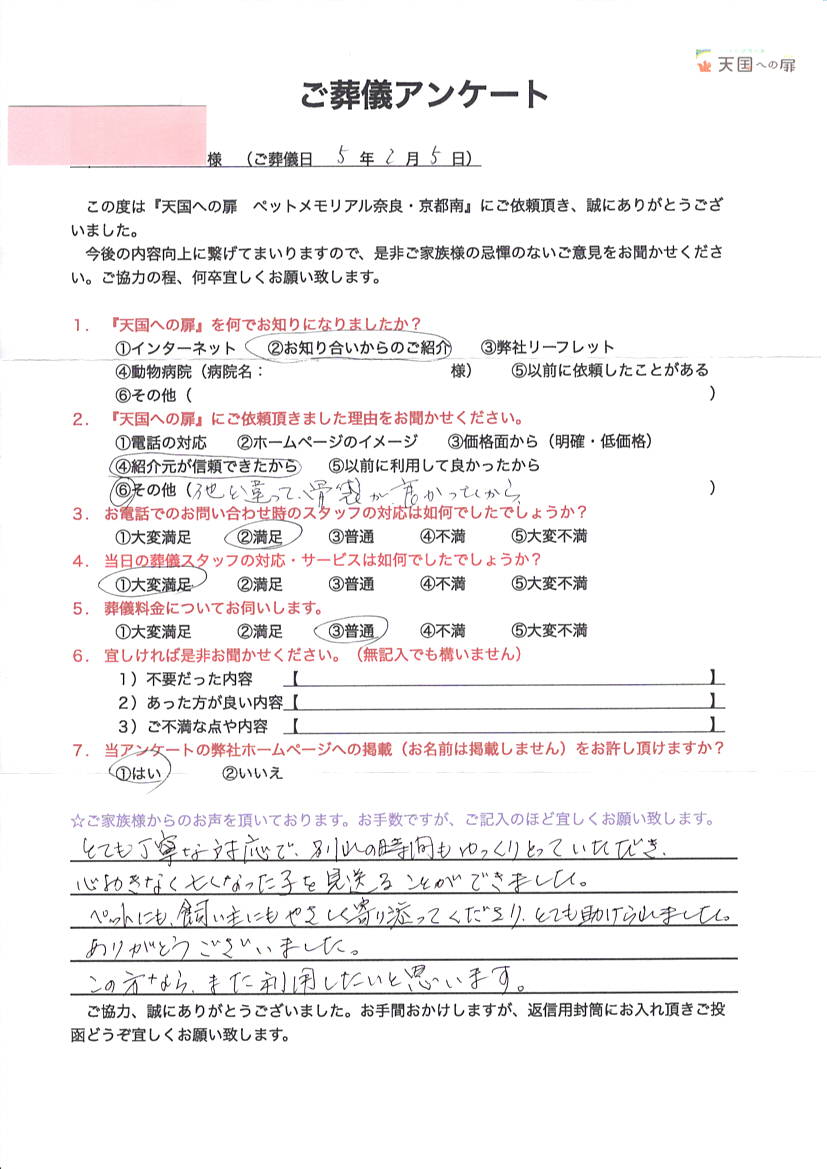 天国への扉
ご葬儀アンケート
様 （ご葬儀日 5 年 2 月 5 日）
この度は『天国への扉 ペットメモリアル奈良・京都南』にご依頼頂き、誠にありがとうござ
いました。
今後の内容向上に繋げてまいりますので、是非ご家族様の忌憚のないご意見をお聞かせくださ
い。ご協力の程、何卒宜しくお願い致します。
1. 『天国への扉』を何でお知りになりましたか？
①インターネット ②お知り合いからのご紹介 ③弊社リーフレット
④動物病院（病院名： 様） ⑤以前に依頼したことがある
⑥その他（ ）
2. 『天国への扉』にご依頼頂きました理由をお聞かせください。
①電話の対応 ②ホームページのイメージ ③価格面から（明確・低価格）
④紹介元が信頼できたから ⑤以前に利用して良かったから
⑥その他（他と違って、骨袋が かったから ）
3. お電話でのお問い合わせ時のスタッフの対応は如何でしたでしょうか？
①大変満足 ②満足 ③普通 ④不満 ⑤大変不満
4. 当日の葬儀スタッフの対応・サービスは如何でしたでしょうか？
①大変満足 ②満足 ③普通 ④不満 ⑤大変不満
5. 葬儀料金についてお伺いします。
①大変満足 ②満足 ③普通 ④不満 ⑤大変不満
6. 宜しければ是非お聞かせください。（無記入でも構いません）
1）不要だった内容 【 】
2）あった方が良い内容【 】
3）ご不満な点や内容 【 】
7. 当アンケートの弊社ホームページへの掲載（お名前は掲載しません）をお許し頂けますか？
①はい ②いいえ
☆ご家族様からのお声を頂いております。お手数ですが、ご記入のほど宜しくお願い致します。
とても丁寧な対応で、別れの時間もゆっくりとっていただき、
心動きなく亡くなった子を見送ることができました。
ペットにも、飼い主にもやさしく寄り添ってくださり、とても助けられました。
ありがとうございました。
この方なら、また利用したいと思います。
ご協力、誠にありがとうございました。お手間おかけしますが、返信用封筒にお入れ頂きご投
函どうぞ宜しくお願い致します。